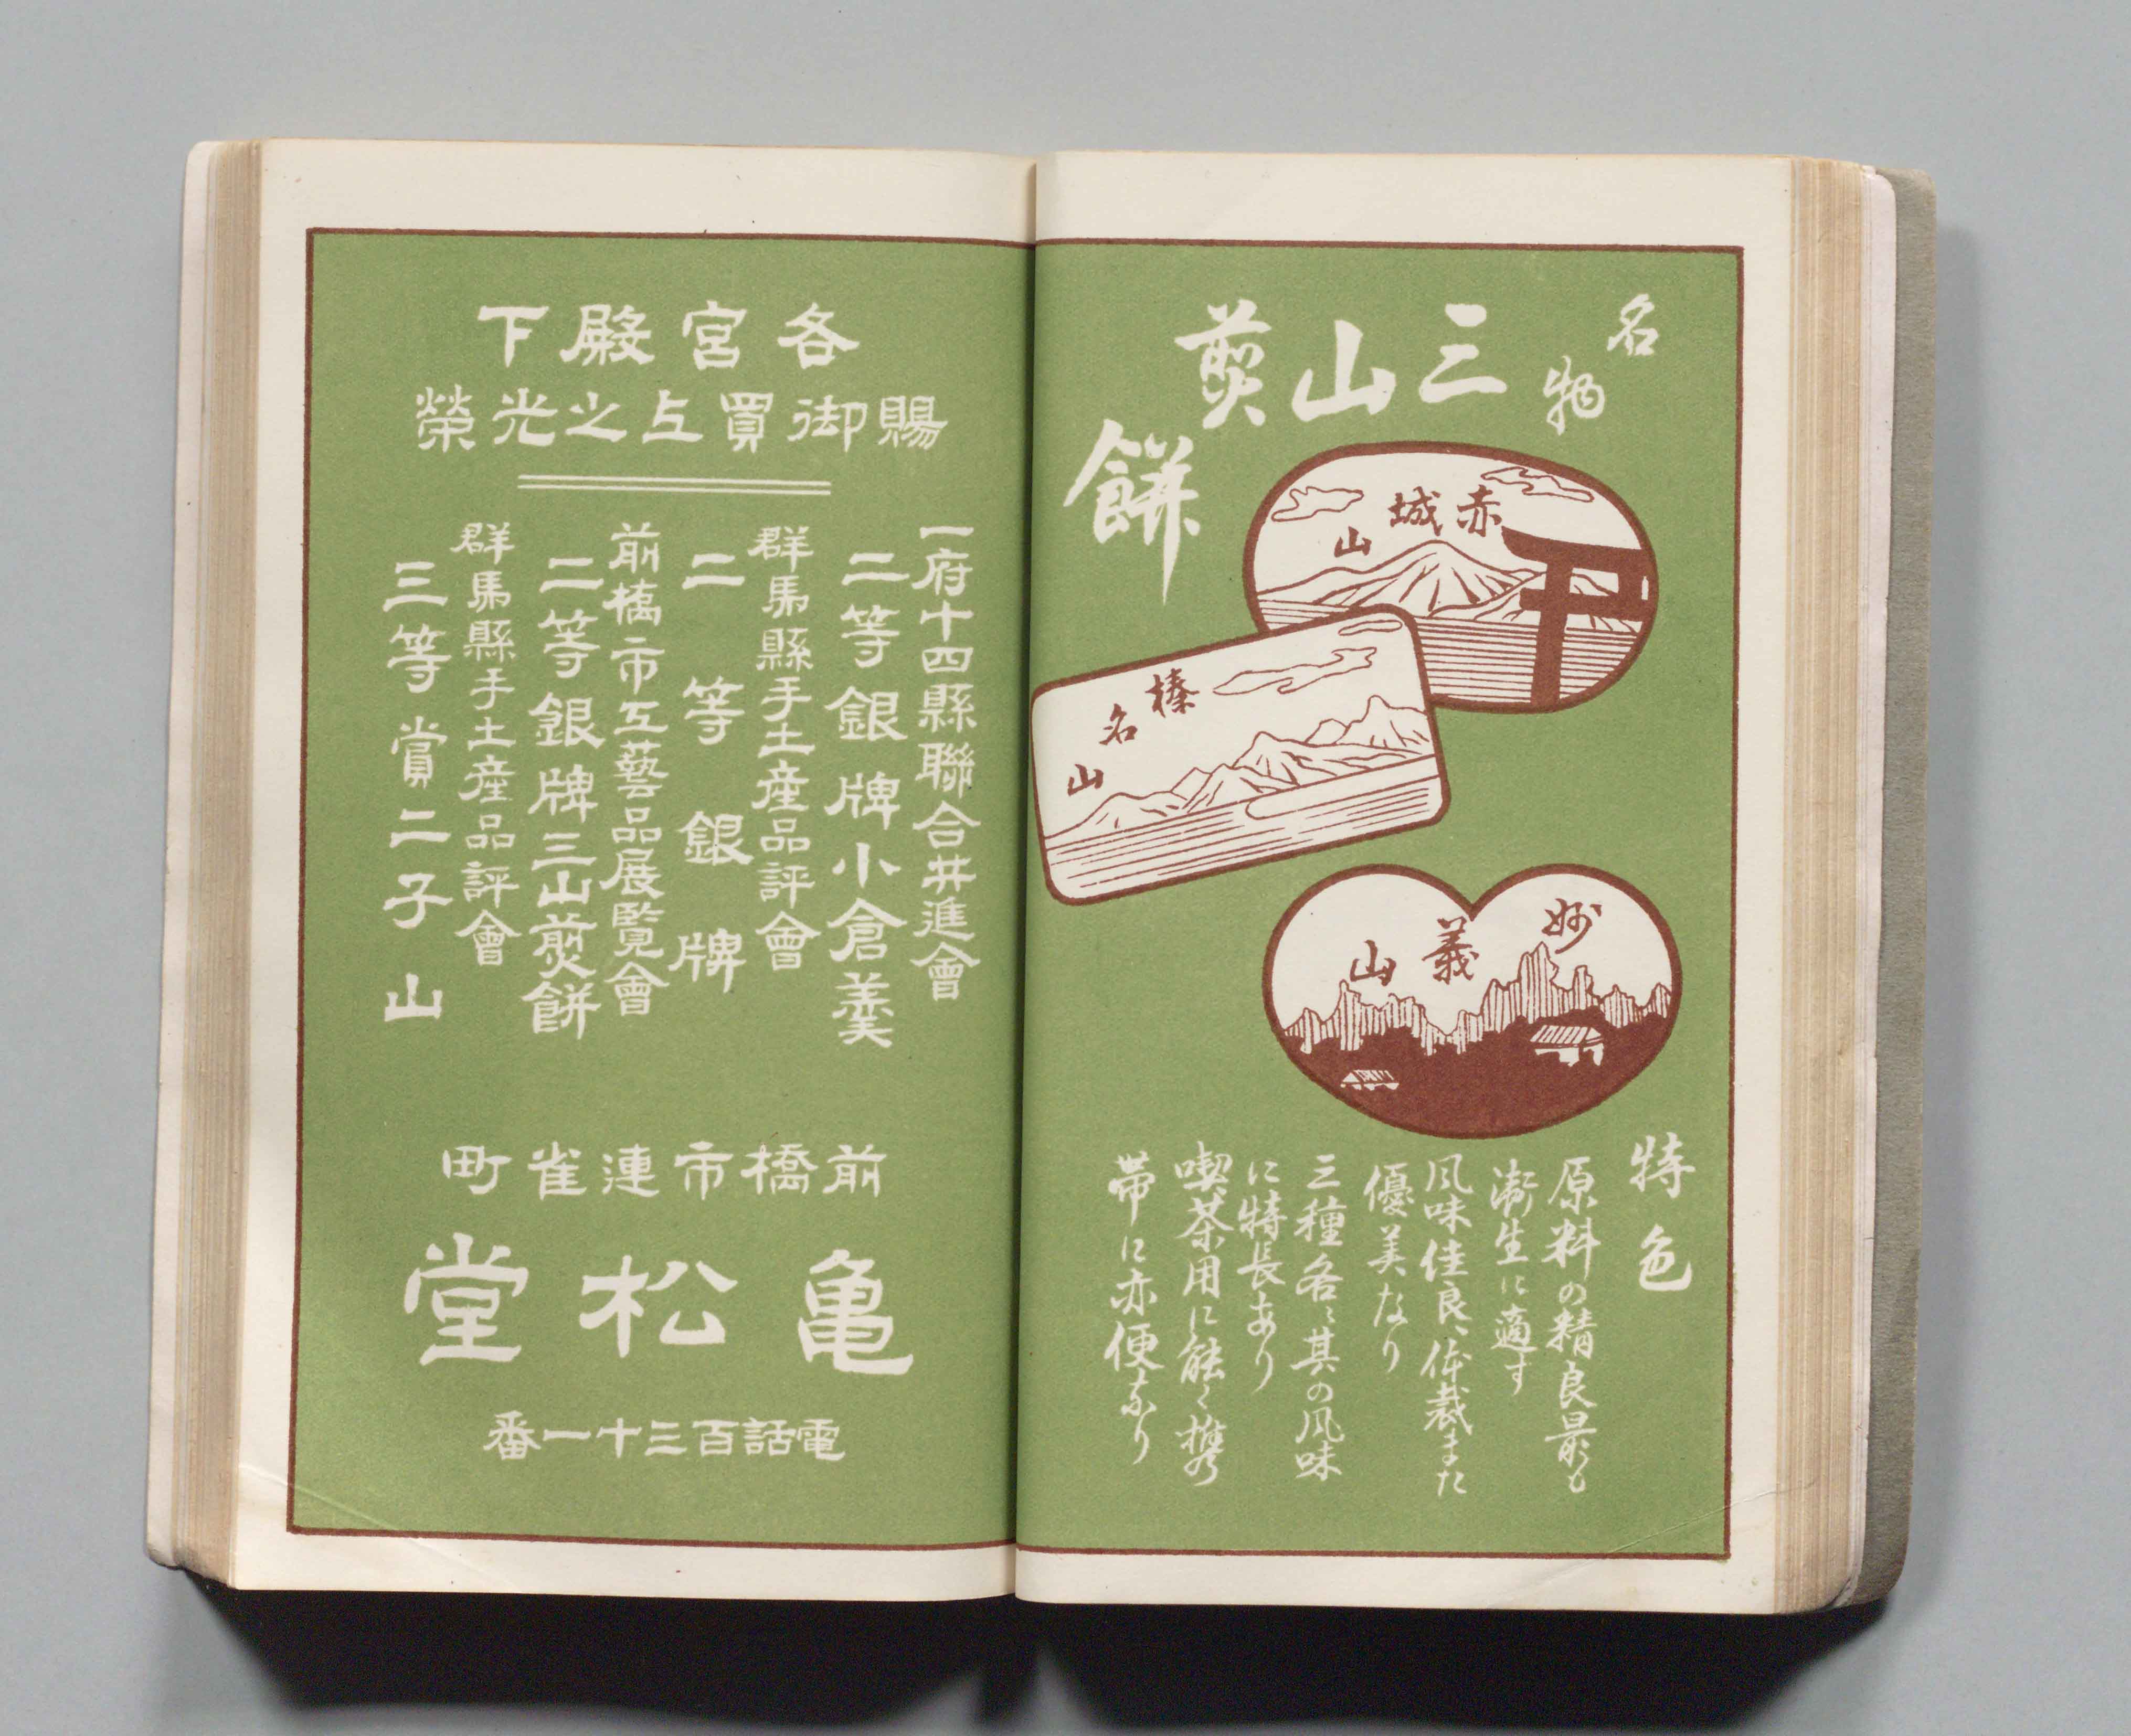 名物
三山煎餅
赤城山
榛名山
妙義山
特色
原料の精良最も
衛生に適す
風味佳良、体裁また
優美なり
三種各〻其の風味
に特長あり
喫茶用に能く携
帯に亦便なり
各宮殿下
賜御買上之光榮
一府十四縣聯合共進會
二等銀牌小倉羹
群馬縣手土産品評會
二等銀牌
前橋市工藝品展覧會
二等銀牌三山煎餅
群馬縣手土産品評會
三等賞二子山
前橋市連雀町
亀松堂
電話百三十一番